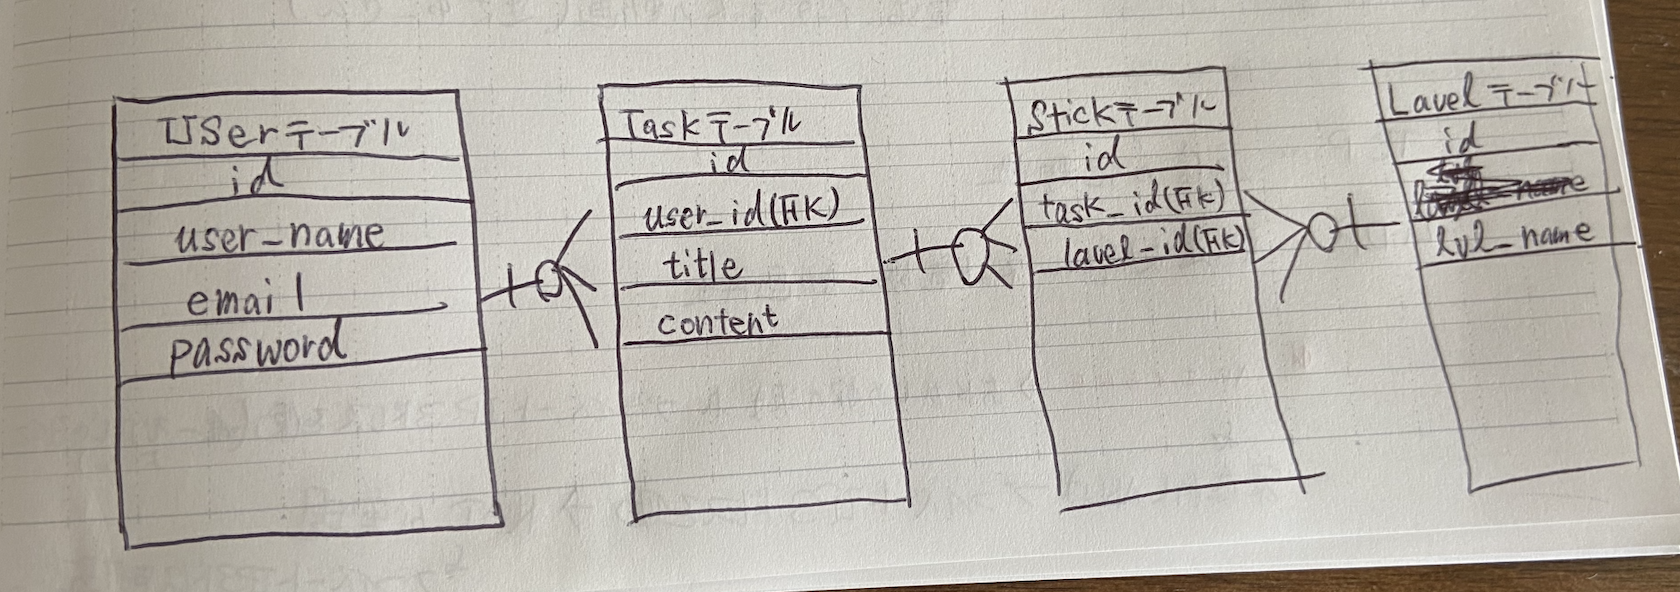 Userテーブル
id
user_name
email
password
Taskテーブル
id
user_id(FK)
title
content
Stickテーブル
id
task_id(FK)
lavel_id(FK)
Lavelテーブル
id
name
lvl_name